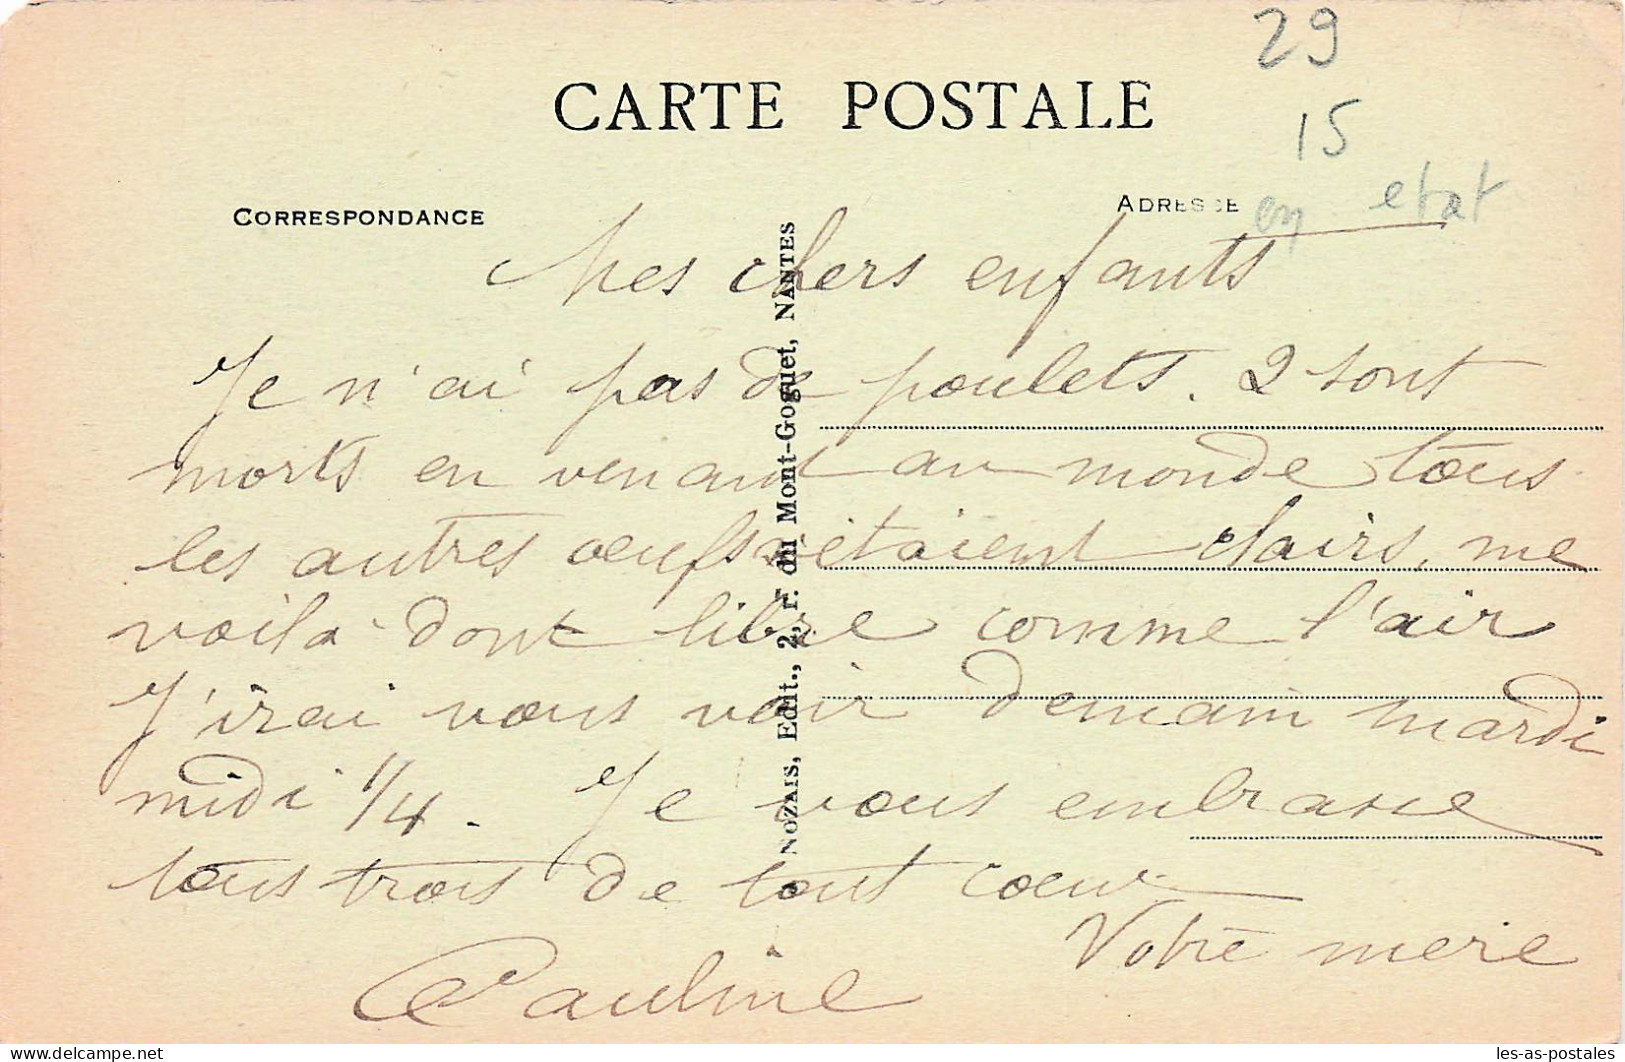 29
15
en etat
CARTE POSTALE
CORRESPONDANCE
ADRESSE
NOZAIS, Edit., 2, r. du Mont-Goguet, NANTES
Mes chers enfants
Je n'ai pas de poulets. 2 sont
morts en venant au monde tous
les autres oeufs étaient clairs, me
voilà donc libre comme l'air
J'irai vous voir demain mardi
midi 1/4. Je vous embrasse
tous trois de tout coeur
Votre mere
Pauline
les-as-postales
www.delcampe.net